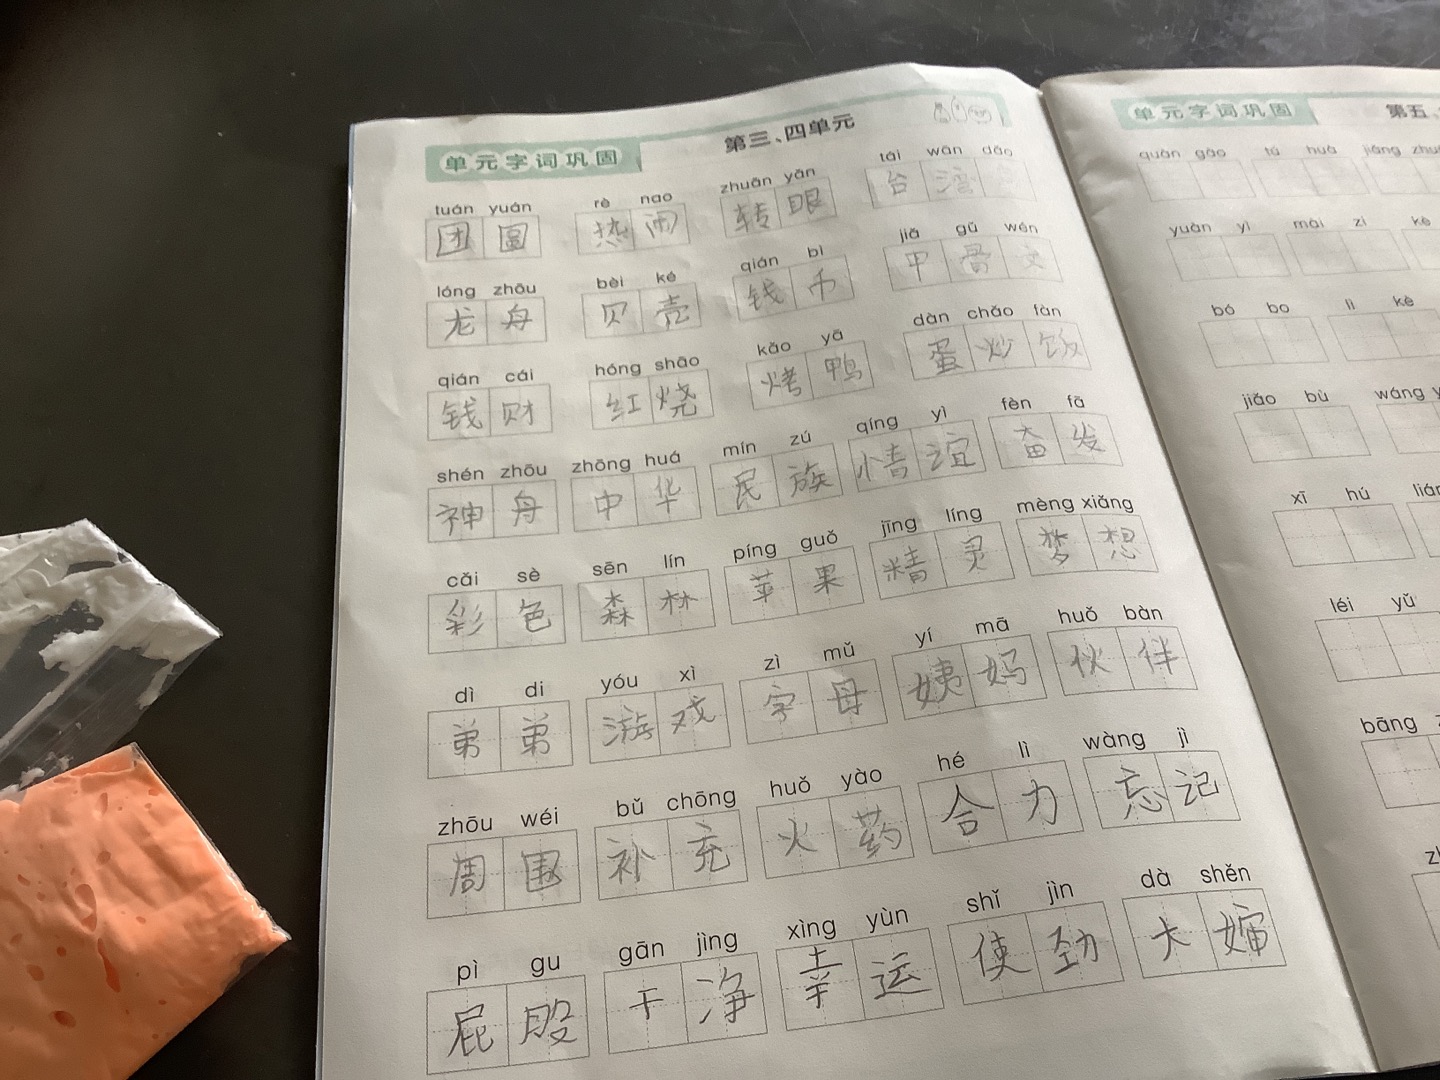 单元字词巩固 第三、四单元
tuán yuán rè nao zhuǎn yǎn tái wān dǎo
团圆 热闹 转眼 台湾
lóng zhōu bèi ké qián bì jiǎ gǔ wén
龙舟 贝壳 钱币 甲骨文
qián cái hóng shāo kǎo yā dàn chǎo fàn
钱财 红烧 烤鸭 蛋炒饭
shén zhōu zhōng huá mín zú qíng yì fèn fā
神舟 中华 民族 情谊 奋发
cǎi sè sēn lín píng guǒ jīng líng mèng xiǎng
彩色 森林 苹果 精灵 梦想
dì di yóu xì zì mǔ yí mā huǒ bàn
弟弟 游戏 字母 姨妈 伙伴
zhōu wéi bǔ chōng huǒ yào hé lì wàng jì
周围 补充 火药 合力 忘记
pì gu gān jìng xìng yùn shǐ jìn dà shěn
屁股 干净 幸运 使劲 大婶
单元字词巩固 第五、
quàn gào tú huà jiǎng
yuàn yì mài zi kè
bó bo lì kè
jiǎo bù wáng
xī hú
léi yǔ
bāng